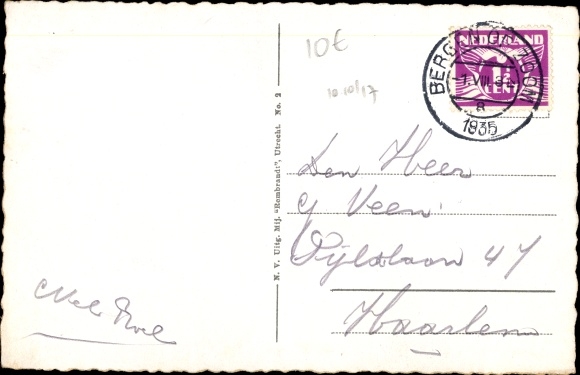 10€
10/10/17
NEDERLAND
1½
CENT
BERGEN OP ZOOM
-1.VIII.
8
1935
N. V. Uitg. Mij. "Rembrandt", Utrecht. No. 2
Den Heer
G Veen
Pijlslaan 47
Haarlem
Nel